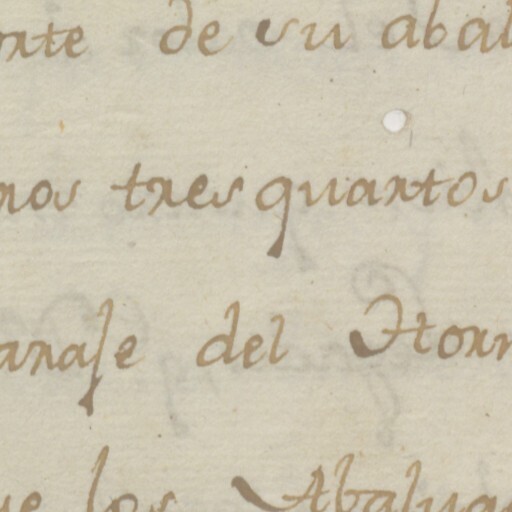 rte de su abal
nos tres quartos
arase del Horn
ue los Abalua